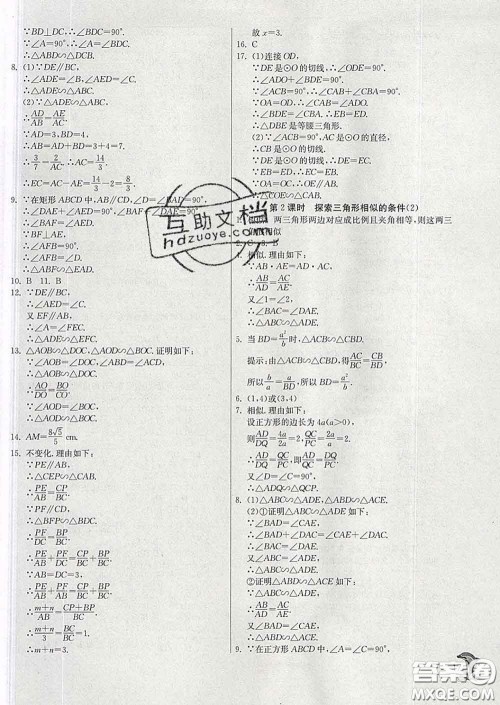 ∵BD⊥DC,∴∠BDC=90°.
∵∠A=90°,∴∠A=∠BDC.
∴△ABD∽△DCB.
8. (1)∵DE∥BC,
∴∠ADE=∠B,∠AED=∠C.
∴△ADE∽△ABC.
(2)∵△ADE∽△ABC,
∴AD/AB=AE/AC.
∵AD=3,BD=4,
∴AB=AD+BD=3+4=7.
∴3/7=2/AC.∴AC=14/3.
∴EC=AC-AE=14/3-2=8/3.
9. ∵在矩形ABCD中,∠BAD=∠D=90°,
∴∠DAE+∠AED=90°,∠DAE+
∠BAF=∠DAE=90°.
∵BF⊥AE,
∴∠AFB=∠D=90°.
∴△ABF∽△EAD.
10. B 11. B
12. ∵DE∥BC,
∴∠AED=∠C.
又EF∥AB,
∴∠A=∠FEC.
∴△ADE∽△EFC.
13. △AOB∽△DOC,△AOD∽△BOC.证明如下:
∵∠AOB=∠DOC,∠BAC=∠BDC,
∴△AOB∽△DOC.
∴AO/DO=BO/CO.
∵∠AOD=∠BOC,
∴△AOD∽△BOC.
14. AM=8√5/5 cm.
15. 不变化.理由如下:
∵PE∥AB,
∴△CEP∽△CAB.
∴PE/AB=CP/BC.
∵PF∥CD,
∴△BFP∽△BDC.
∴PF/DC=BP/BC.
∴PE/AB+PF/DC=CP/BC+BP/BC.
∵AB=DC=3,
∴PE/3+PF/3=CP+BP/BC.
∴m+n/3=BC/BC=1.
∴m+n=3.
故x=3.
16. C
17. (1)连接OD,
∵DE是⊙O的切线,∴∠ODE=90°.
∴∠ADO+∠BDE=90°.
∵∠ACB=90°,∴∠CAB+∠CBA=90°.
∵OA=OD,∴∠CAB=∠ADO.
∴∠BDE=∠CBA.∴EB=ED.
∴△DBE是等腰三角形.
(2)∵∠ACB=90°,AC是⊙O的直径,
∴CB是⊙O的切线.
∵DE是⊙O的切线,∴DE=EC.
∵EB=ED,∴EC=EB.
∵OA=OC,∴OE∥AB.
∴△COE∽△CAB.
第2课时 探索三角形相似的条件(2)
两三角形两边对应成比例且夹角相等,则这两三
4. 相似.理由如下:
∵AB·AE=AD·AC,
∴AB/AD=AC/AE.
又∠1=∠2,
∴∠BAC=∠DAE.
∴△ABC∽△ADE.
5. 当BD=a²/b时,△ACB∽△CBD.
提示:由△ACB∽△CBD,得AC/CB=CB/BD,
所以b/a=a/BD,所以BD=a²/b.
6. (1,4)或(3,4)
7. 相似.理由如下:
设正方形的边长为4a(a>0),
则AD/DQ=4a/2a=2,QC/PC=2a/a=2.
∴AD/DQ=QC/PC,即AD/QC=DQ/PC.
又∠D=∠C=90°,
∴△ADQ∽△QCP.
8. (1)△ABC∽△ADE,△ABD∽△ACE.
(2)①证明△ABC∽△ADE如下:
∵∠BAD=∠CAE,
∴∠BAD+∠DAC=∠CAE+∠DAC,
即∠BAC=∠DAE.
又∠ABC=∠ADE,
∴△ABC∽△ADE.
②证明△ABD∽△ACE如下:
∵△ABC∽△ADE,
∴AB/AD=AC/AE.
∴AB/AC=AD/AE.
又∠BAD=∠CAE,
∴△ABD∽△ACE.
9. ∵在正方形ABCD中,∠A=∠C=90°,
互助文档
hdzuoye.com
答案圈
MXQE.COM